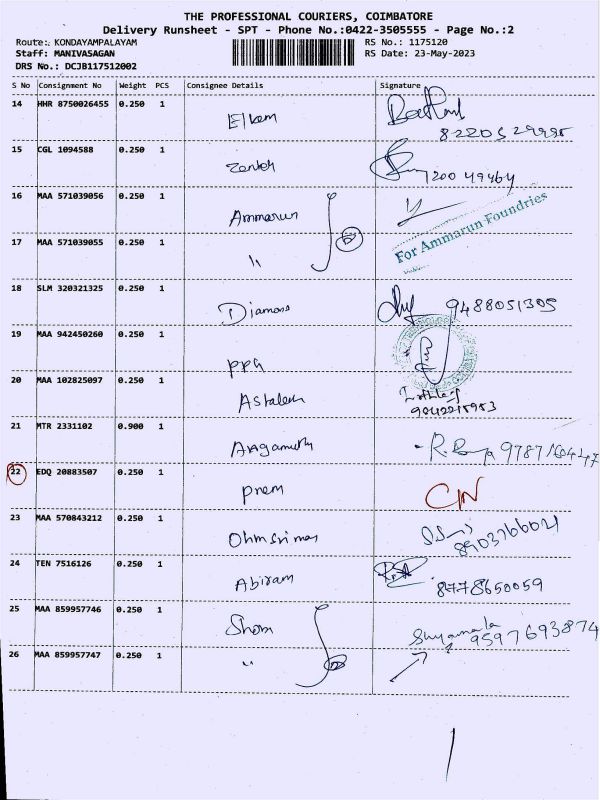 THE PROFESSIONAL COURIERS, COIMBATORE
Delivery Runsheet - SPT - Phone No.:0422-3505555 - Page No.:2
Route: KONDAYAMPALAYAM RS No.: 1175120
Staff: MANIVASAGAN RS Date: 23-May-2023
DRS No.: DCJB117512002
S No Consignment No Weight PCS Consignee Details Signature
14 HHR 8750026455 0.250 1
15 CGL 1094588 0.250 1
16 MAA 571039056 0.250 1 Ammarun
For Ammarun Foundries
17 MAA 571039055 0.250 1 "
18 SLM 320321325 0.250 1 Diamond 9488051305
19 MAA 942450260 0.250 1 ppg
20 MAA 102825097 0.250 1
21 MTR 2331102 0.900 1
22 EDQ 20883507 0.250 1 Prem
23 MAA 570843212 0.250 1
24 TEN 7516126 0.250 1 Abiram 8778650059
25 MAA 859957746 0.250 1 Shyamala 9597693874
26 MAA 859957747 0.250 1 "